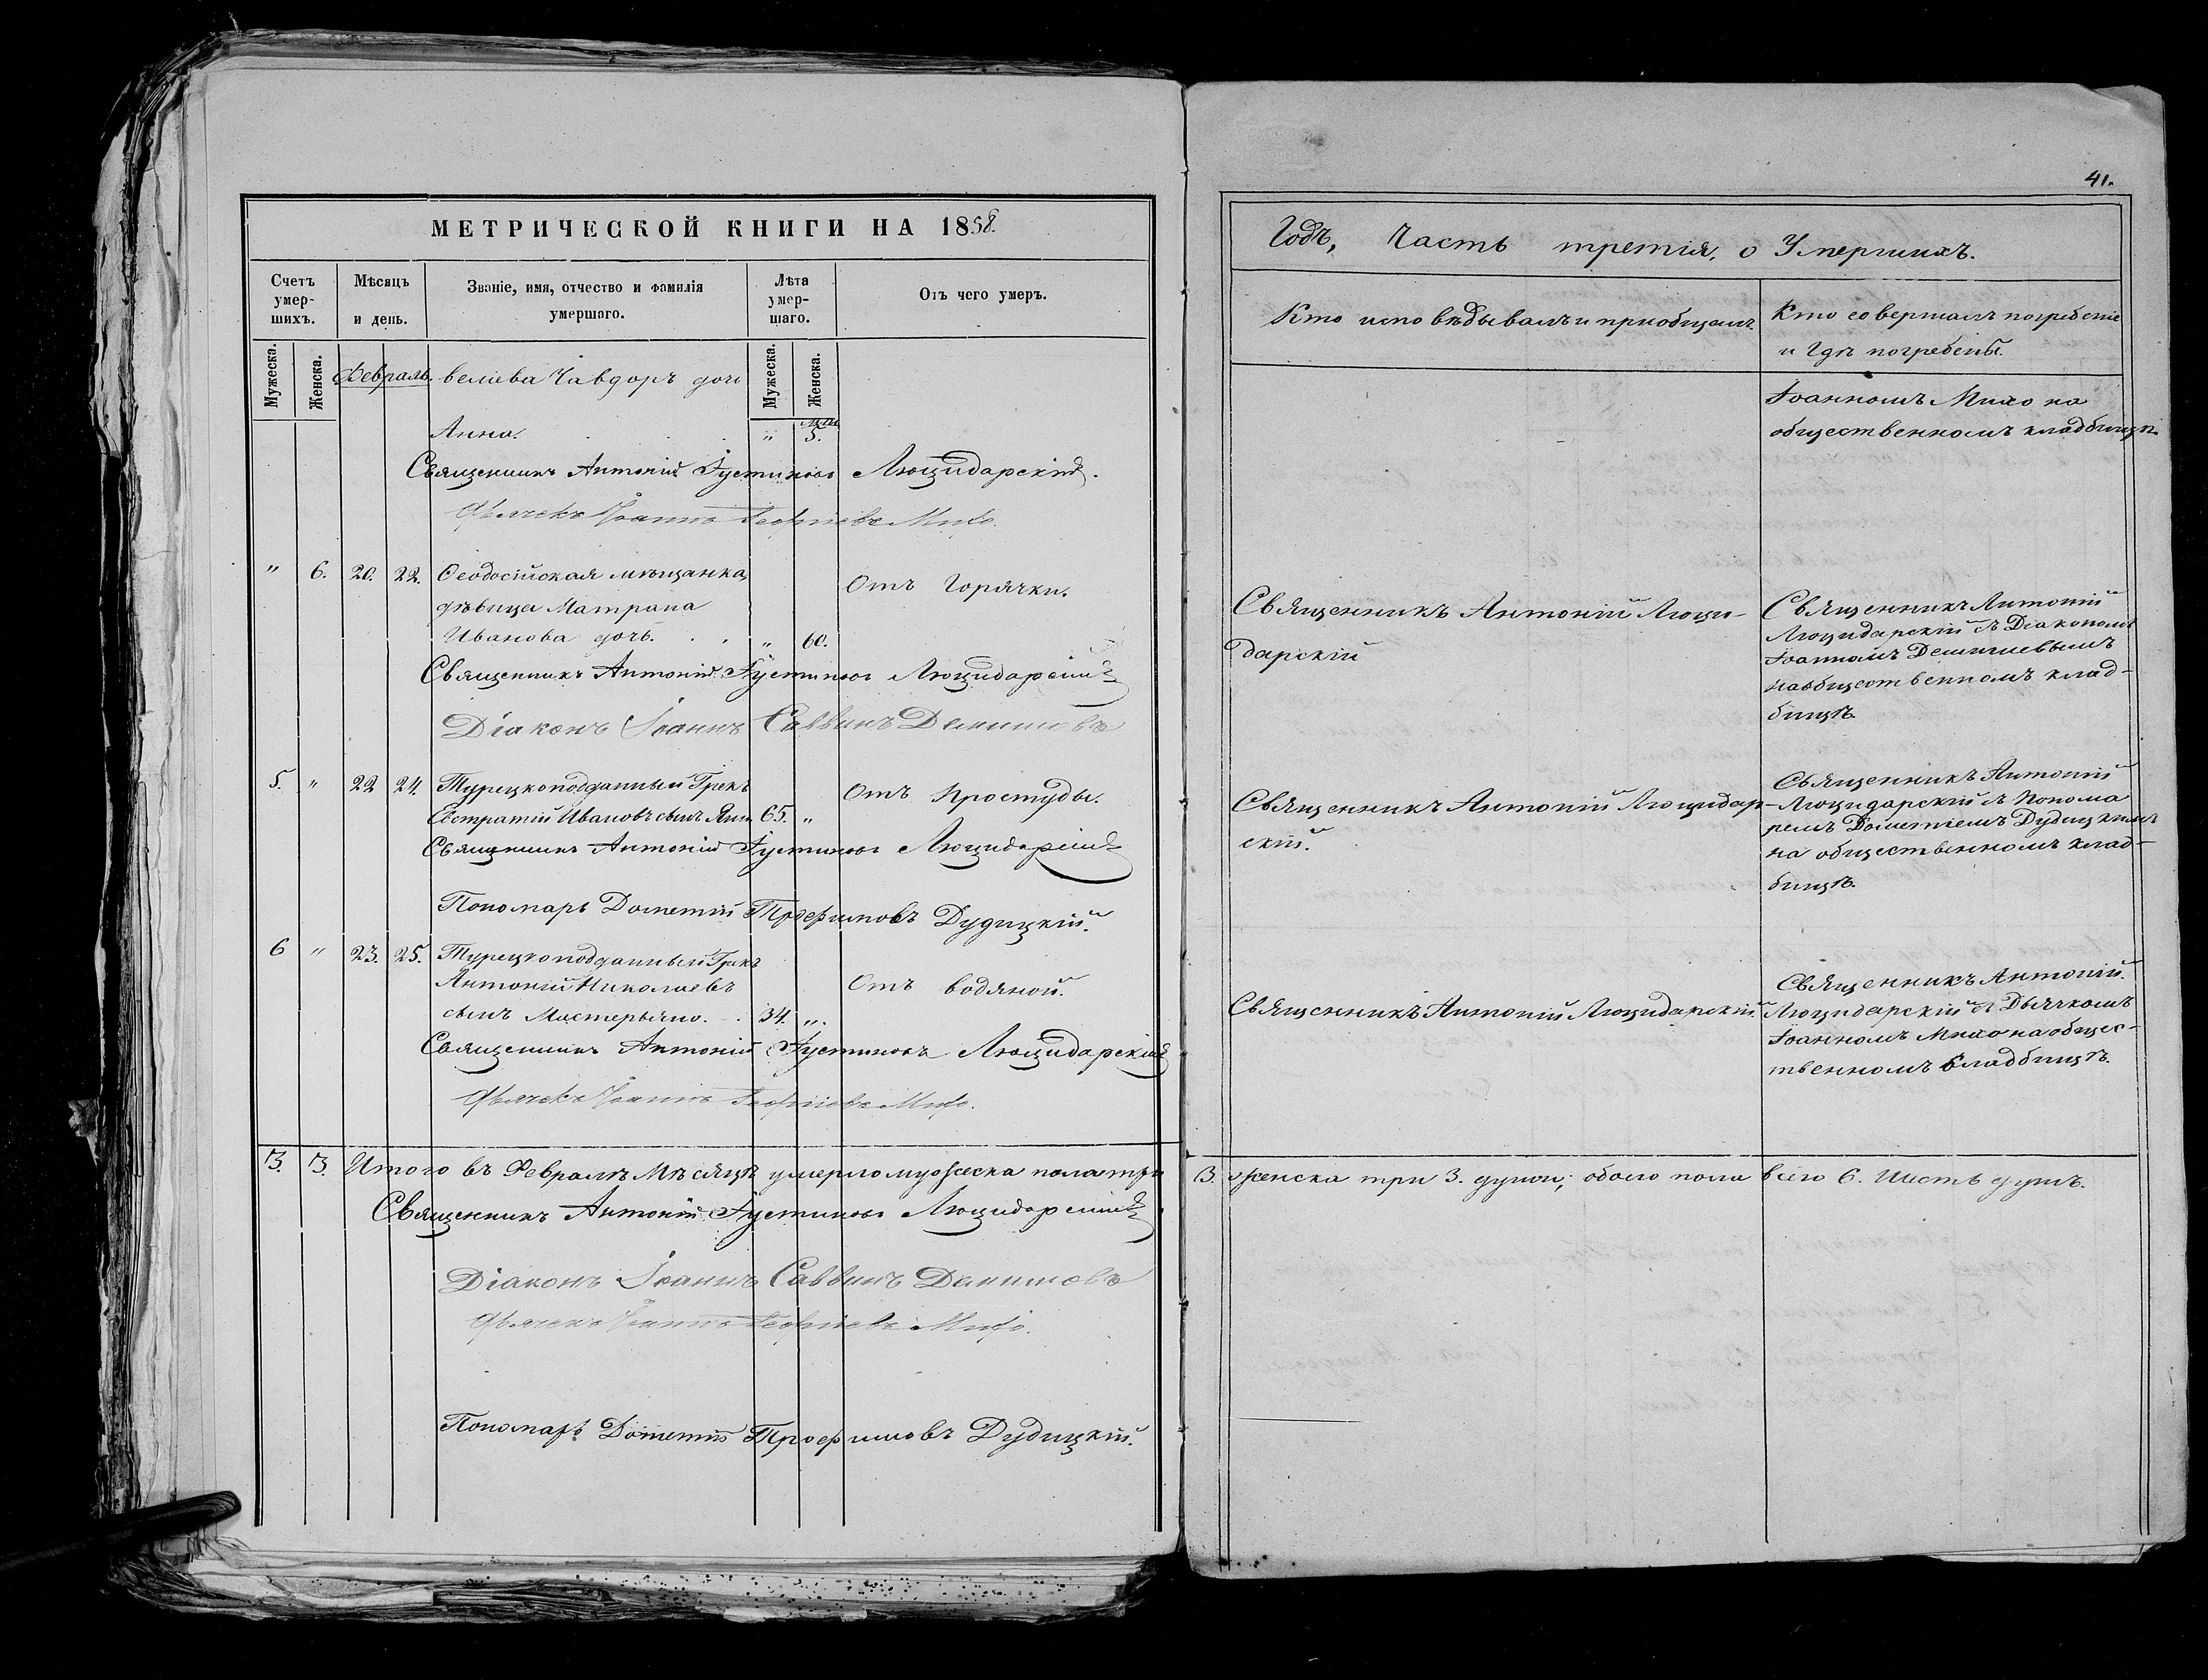 МЕТРИЧЕСКОЙ КНИГИ НА 1858.
Счетъ умер-шихъ.
Мѣсяцъ и день.
Званіе, имя, отчество и фамилія умершаго.
Лѣта умер-шаго.
Отъ чего умеръ.
Мужеска.
Женска.
Февраль.
веліева Чавдоръ дочь
Мужеска.
Женска.
Анна. " 5.
Священникъ Антоній Іустиновъ Люцидарскій.
Дьячекъ Іоаннъ Георгіевъ Михо.
" 6. 20. 22. Ѳеодосійская мѣщанка Отъ Горячки.
дѣвица Матрана
Иванова дочь. " 60.
Священникъ Антоній Іустиновъ Люцидарскій
Діаконъ Іоаннъ Саввинъ Демишевъ
5. " 22 24. Турецкоподданный Грекъ Отъ Простуды.
Евстратій Ивановъ сынъ 65. "
Священникъ Антоній Іустиновъ Люцидарскій
Пономарь Дометій Трофимовъ Дудицкій.
6 " 23. 25. Турецкоподданный Грекъ
Антоній Николаевъ Отъ водяной.
сынъ Мастерьяно. 34. "
Священникъ Антоній Іустиновъ Люцидарскій
Дьячекъ Іоаннъ Георгіевъ Михо.
3. 3. Итого въ Февралѣ Мѣсяцѣ умерло мужеска пола три
Священникъ Антоній Іустиновъ Люцидарскій
Діаконъ Іоаннъ Саввинъ Демишевъ
Дьячекъ Іоаннъ Георгіевъ Михо.
Пономарь Дометій Трофимовъ Дудицкій.
41.
Годъ, Часть третія, о Умершихъ.
Кто исповѣдывалъ и пріобщалъ.
Кто совершалъ погребеніе
и Гдѣ погребены.
Іоанномъ Михо на
общественномъ кладбищѣ.
Священникъ Антоній Люци-
дарскій
Священникъ Антоній
Люцидарскій съ Діакономъ
Іоанномъ Демишевымъ
на общественномъ клад-
бищѣ.
Священникъ Антоній Люцидар-
скій.
Священникъ Антоній
Люцидарскій съ Понома
ремъ Дометіемъ Дудицкимъ
на общественномъ клад-
бищѣ.
Священникъ Антоній Люцидарскій.
Священникъ Антоній
Люцидарскій съ Дьячкомъ
Іоанномъ Михо на общес-
твенномъ кладбищѣ.
3. женска три 3. души; обоего пола всего 6. Шесть душъ.